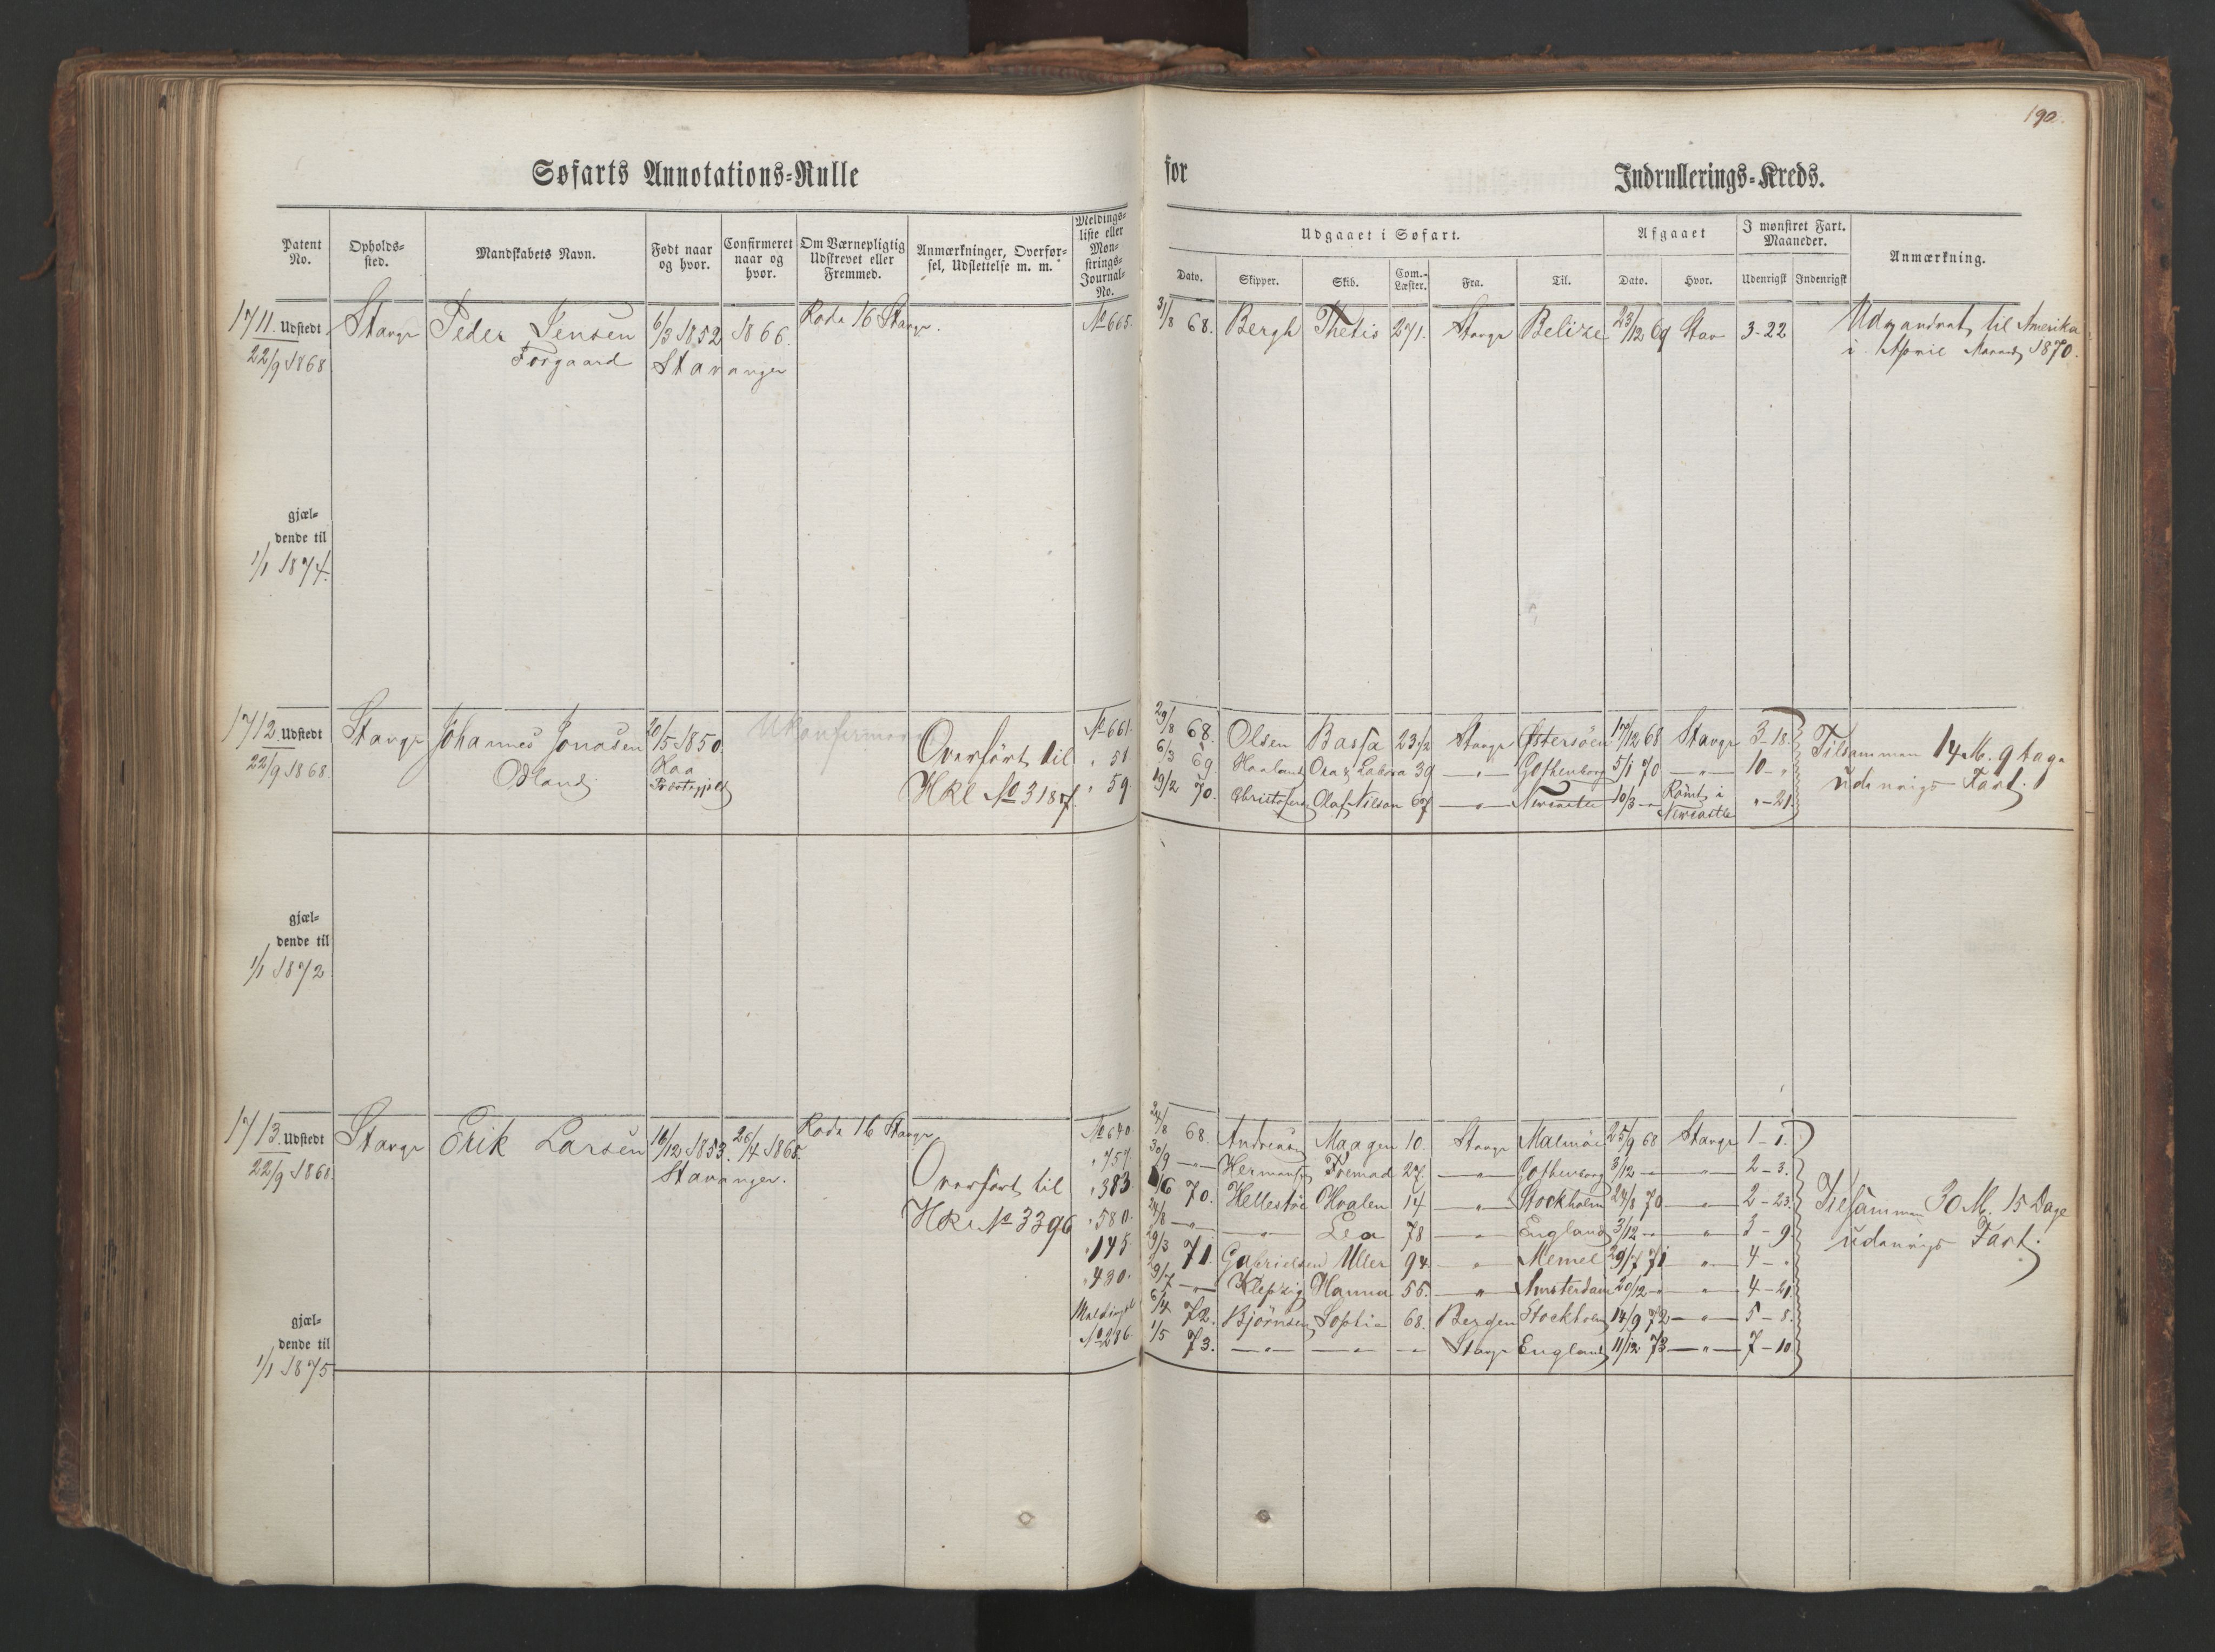 190.
Søfarts Annotations=Rulle for Indrullerings=Kreds.
Patent No. Opholds=sted. Mandskabets Navn. Født naar og hvor. Confirmeret naar og hvor. Om Værnepligtig Udskrevet eller Fremmed. Anmærkninger, Overførsel, Udslettelse m. m. Meldings=liste eller Mønstrings=Journal=No.
Udgaaet i Søfart. Afgaaet I mønstret Fart. Maaneder. Anmærkning.
Dato. Skipper. Skib. Com.=Læster. Fra. Til. Dato. Hvor. Udenrigsk Indenrigsk
1711. Udstedt Stavgr Peder Jensen 6/3 1852 1866. Rode 16 Stavgr. No 665. 31/8 68. Bergh Thetis 271. Stavgr Belize 23/12 69 Stav 3-22 Udvandret til Amerika
22/9 1868 Forgaard Stavanger i April Maaned 1870.
gjæl=
dende til
1/1 1874.
1712. Udstedt Stavgr Johannes Jonasen 20/5 1850. Ukonfirmeret Overført til No 661. 29/8 68. Olsen Bassa 23 1/2 Stavgr Østersøen 17/12 68 Stavgr 3-18. Tilsammen 14 M. 9 Dage
22/9 1868. Odland Haa " 51 6/3 69. Haaland Ora & Labora 39 —"— Gothenborg 5/1 70 —"— 10-" udenrigs Fart.
Præstegjeld HRl No 3187. " 59 19/2 70. Christofersen Olaf Nilson 67 —"— Newcastle 10/3 — Rømt i Newcastle "-21.
gjæl=
dende til
1/1 1872
1713. Udstedt Stavgr Erik Larsen 16/12 1853. 26/4 1868. Rode 16 Stavgr No 640 24/8 68. Andreasen Maagen 10. Stavgr Malmöe 25/9 68 Stavgr 1-1.
22/9 1868. Stavanger. " 757. 30/9 —"— Hermansen Fremad 27. —"— Gothenborg 3/12 — —"— 2-3.
Overført til " 383 /6 70. Hellestöe Hvalen 14 —"— Stockholm 24/8 70 —"— 2-23. Tilsammen 30 M. 15 Dage
HRl No 3396 " 580. 24/8 —"— —"— Lea 78 —"— England 3/12 — " 3-9 udenrigs Fart.
" 145. 29/3 71. Gabrielsen Uller 94. " Memel 29/7 71 " 4-"
" 430. 29/7 —"— Klepzig Hanna 55. —"— Amsterdam 20/12 — " 4-21.
Meldingsl 6/4 72. Björnsen Sophie 68. Bergen Stockholm 14/9 72 —"— 5-8.
No 286. 1/5 73. —"— —"— —"— Stavgr England 11/12 73 —"— 7-10
gjæl=
dende til
1/1 1875